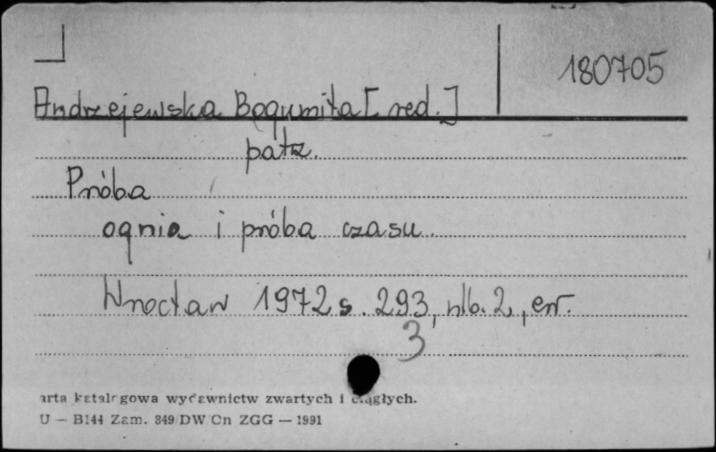 180705
Andrzejewska Bogumiła [red.]
patrz.
Próba
ognia i próba czasu.
Wrocław 1972 s. 293, nlb. 2, err.
3
arta katalogowa wydawnictw zwartych i ciągłych.
U — B144 Zam. 849 DW Cn ZGG — 1991